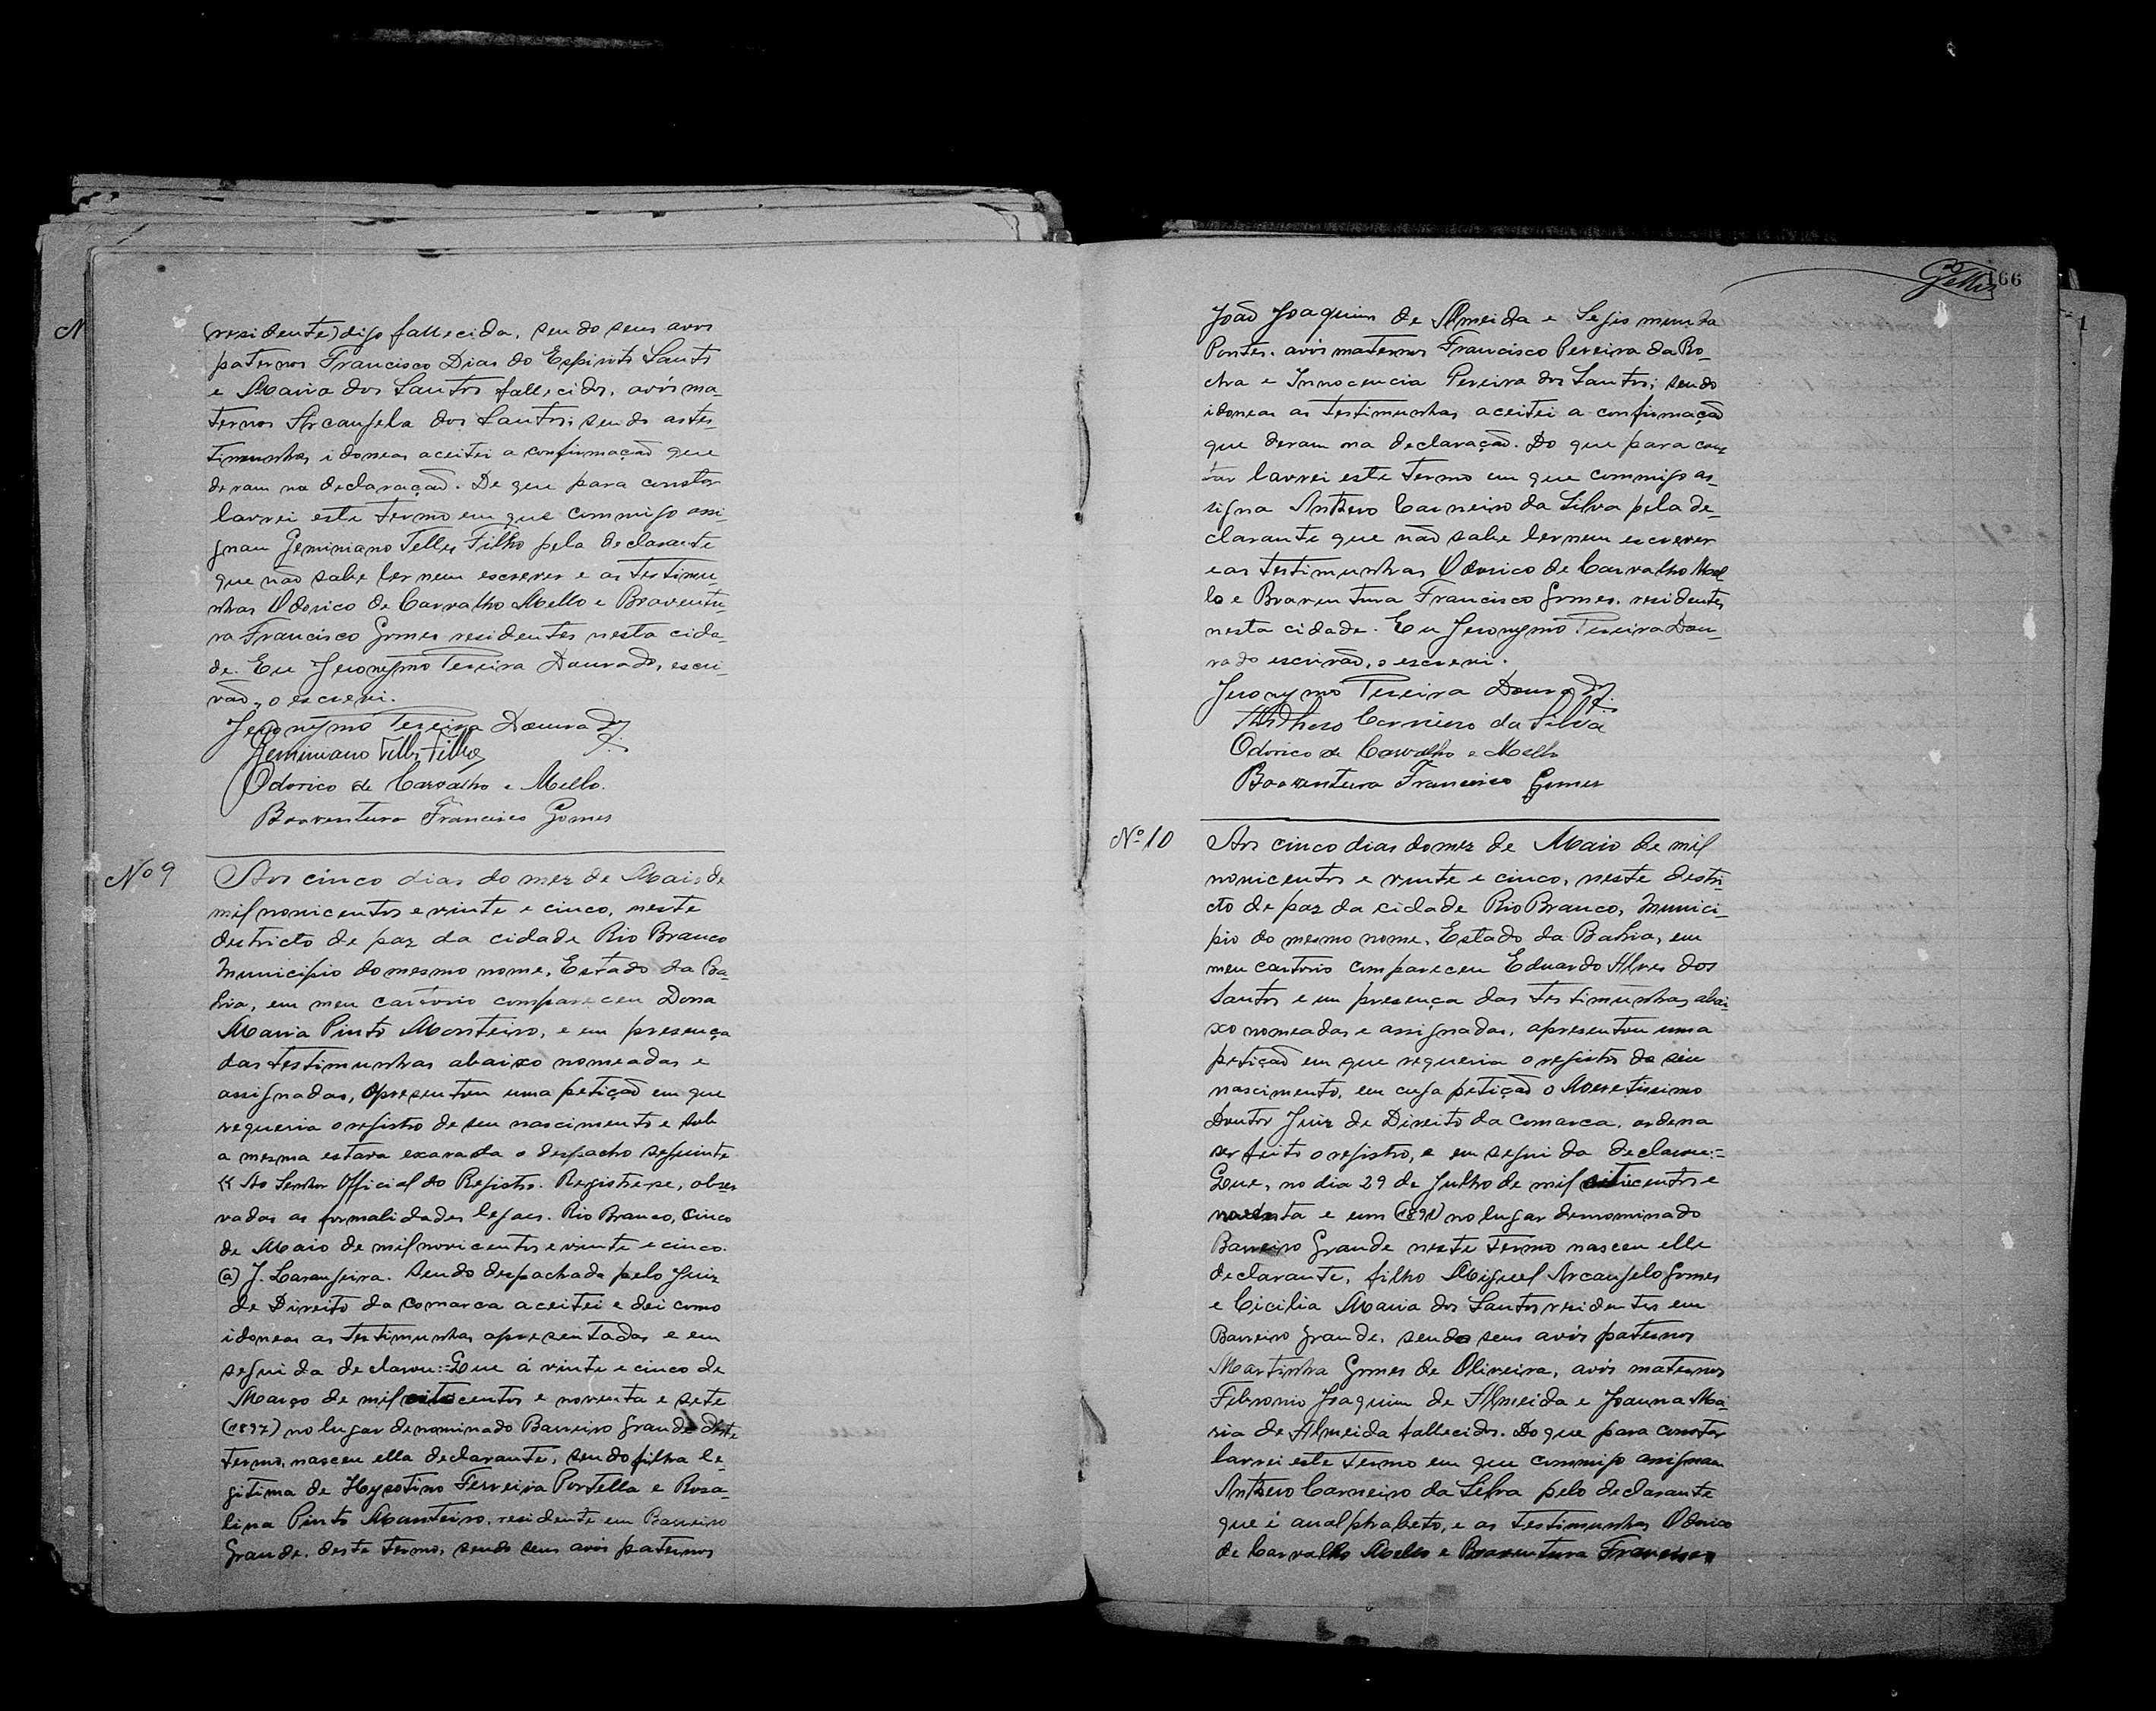 (residente) digo fallecida, sendo seus avos
paternos Francisco Dias do Espirito Santo
e Maria dos Santos fallecidos, avós ma-
ternos Arcangela dos Santos; sendo as tes-
timunhas idoneas aceitei a confirmação que
deram na declaração. De que para constar
lavrei este termo em que commigo assi-
gnam Geminiano Telles Filho pela declarante
que não sabe ler nem escrever e as testimu-
nhas Odorico de Carvalho Mello e Boaventu-
ra Francisco Gomes residentes nesta cida-
de. Eu Jeronymo Pereira Dourado, escri-
vão, o escrevi.
Jeronymo Pereira Dourado
Geminiano Telles Filho
Odorico de Carvalho e Mello.
Boaventura Francisco Gomes
Nº 9
Aos cinco dias do mez de Maio de
mil novicentos e vinte e cinco, neste
districto de paz da cidade Rio Branco
Municipio do mesmo nome, Estado da Ba-
hia, em meu cartorio compareceu Dona
Maria Pinto Monteiro, e em presença
das testimunhas abaixo nomeadas e
assignadas, apresentou uma petição em que
requeria o registro de seu nascimento e sob
a mesma estava exarada o despacho seguinte
« Ao Senhor Official do Registro. Registre-se, obser
vadas as formalidades legaes. Rio Branco, cinco
de Maio de mil novicentos e vinte e cinco.
(a) J. Laranjeira. Sendo despachada pelo Juiz
de Direito da comarca aceitei e dei como
idoneas as testimunhas apresentadas e em
seguida declarou:= Que á vinte e cinco de
Março de mil oitocentos e noventa e sete
(1897) no lugar denominado Barreiro Grande deste
termo, nasceu ella declarante, sendo filha le-
gitima de Hysotino Ferreira Portella e Rosa-
lina Pinto Monteiro, residente em Barreiro
Grande, deste termo, sendo seus avós paternos
166
João Joaquim de Almeida e Segismunda
Pontes, avós maternos Francisco Pereira da Ro-
cha e Innocencia Pereira dos Santos; sendo
idoneas as testimunhas aceitei a confirmação
que deram na declaração. Do que para cons
tar lavrei este termo em que commigo as-
signa Anthero Carneiro da Silva pela de-
clarante que não sabe ler nem escrever
e as testimunhas Odorico de Carvalho Mel-
lo e Boaventura Francisco Gomes, residentes
nesta cidade. Eu Jeronymo Pereira Dou-
rado escrivão, o escrevi.
Jeronymo Pereira Dourado
Anthero Carneiro da Silva
Odorico de Carvalho e Mello
Boaventura Francisco Gomes
Nº 10
Aos cinco dias do mez de Maio de mil
novicentos e vinte e cinco, neste distri-
cto de paz da cidade Rio Branco, Munici-
pio do mesmo nome, Estado da Bahia, em
meu cartorio compareceu Eduardo Alves dos
Santos e em presença das testimunhas abai-
xo nomeadas e assignadas, apresentou uma
petição em que requeria o registro de seu
nascimento, em cuja petição o Meretissimo
Doutor Juiz de Direito da Comarca, ordena
ser feito o registro, e em seguida declarou:=
Que, no dia 29 de Julho de mil oitocentos e
noventa e um (1891) no lugar denominado
Barreiro Grande neste termo nasceu elle
declarante, filho Miguel Arcangelo Gomes
e Cicilia Maria dos Santos residentes em
Barreiro Grande, sendo seus avós paternos
Martinha Gomes de Oliveira, avós maternos
Febronio Joaquim de Almeida e Joanna Ma-
ria de Almeida fallecidos. Do que para constar
lavrei este termo em que commigo assignam
Anthero Carneiro da Silva pelo declarante
que é analphabeto, e as testimunhas Odorico
de Carvalho Mello e Boaventura Francisco